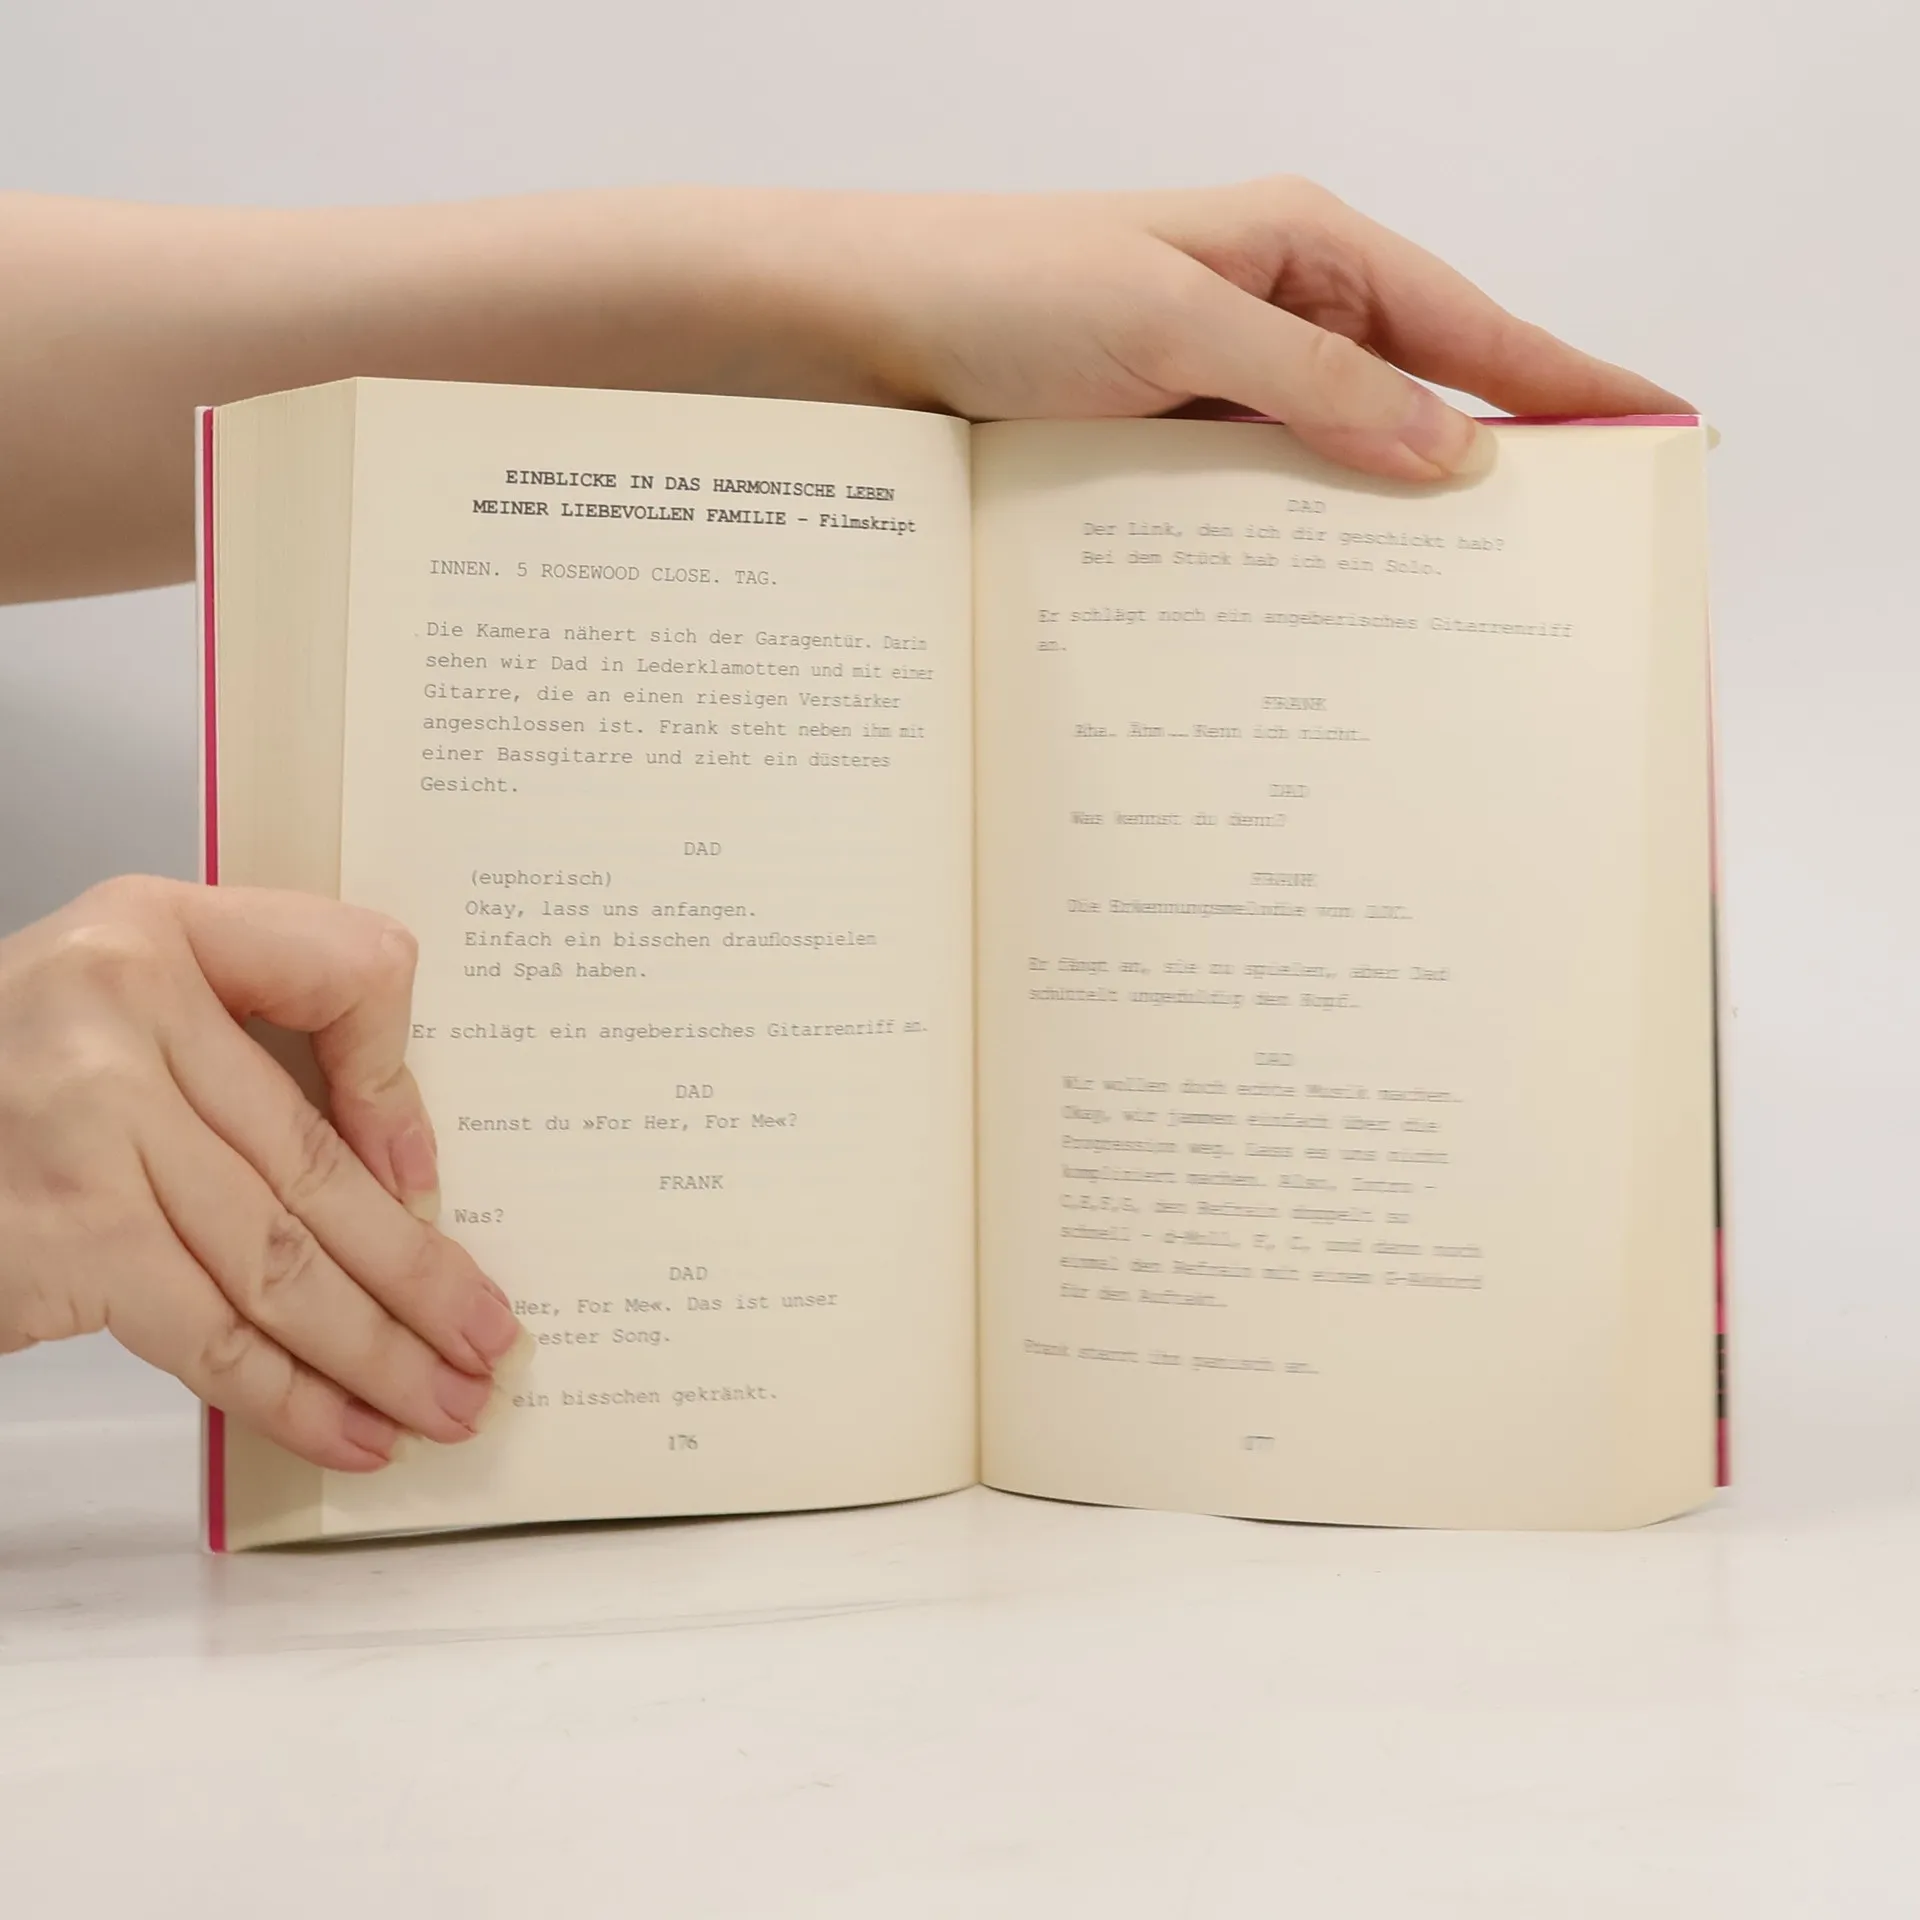 EINBLICKE IN DAS HARMONISCHE LEBEN
MEINER LIEBEVOLLEN FAMILIE – Filmskript
INNEN. 5 ROSEWOOD CLOSE. TAG.
Die Kamera nähert sich der Garagentür. Darin
sehen wir Dad in Lederklamotten und mit einer
Gitarre, die an einen riesigen Verstärker
angeschlossen ist. Frank steht neben ihm mit
einer Bassgitarre und zieht ein düsteres
Gesicht.
DAD
(euphorisch)
Okay, lass uns anfangen.
Einfach ein bisschen drauflosspielen
und Spaß haben.
Er schlägt ein angeberisches Gitarrenriff an.
DAD
Kennst du »For Her, For Me«?
FRANK
Was?
DAD
Her, For Me«. Das ist unser
Song.
ein bisschen gekränkt.
176
DAD
Der Link, den ich dir geschickt hab?
Bei dem Stück hab ich ein Solo.
Er schlägt noch ein angeberisches Gitarrenriff
an.
FRANK
Aha. Ähm … Kenn ich nicht.
DAD
Was kennst du denn?
FRANK
Die Erkennungsmelodie von
Er fängt an, sie zu spielen, aber Dad
schüttelt ungeduldig den Kopf.
DAD
Wir wollen doch echte Musik machen.
Okay, wir jammen einfach über die
Progression weg. Lass es uns nicht
kompliziert machen. Also, Intro –
den Refrain doppelt so
schnell – d-Moll, F, C, und dann noch
einmal den Refrain mit einem
für den Auftakt.
Frank starrt ihn panisch an.
177